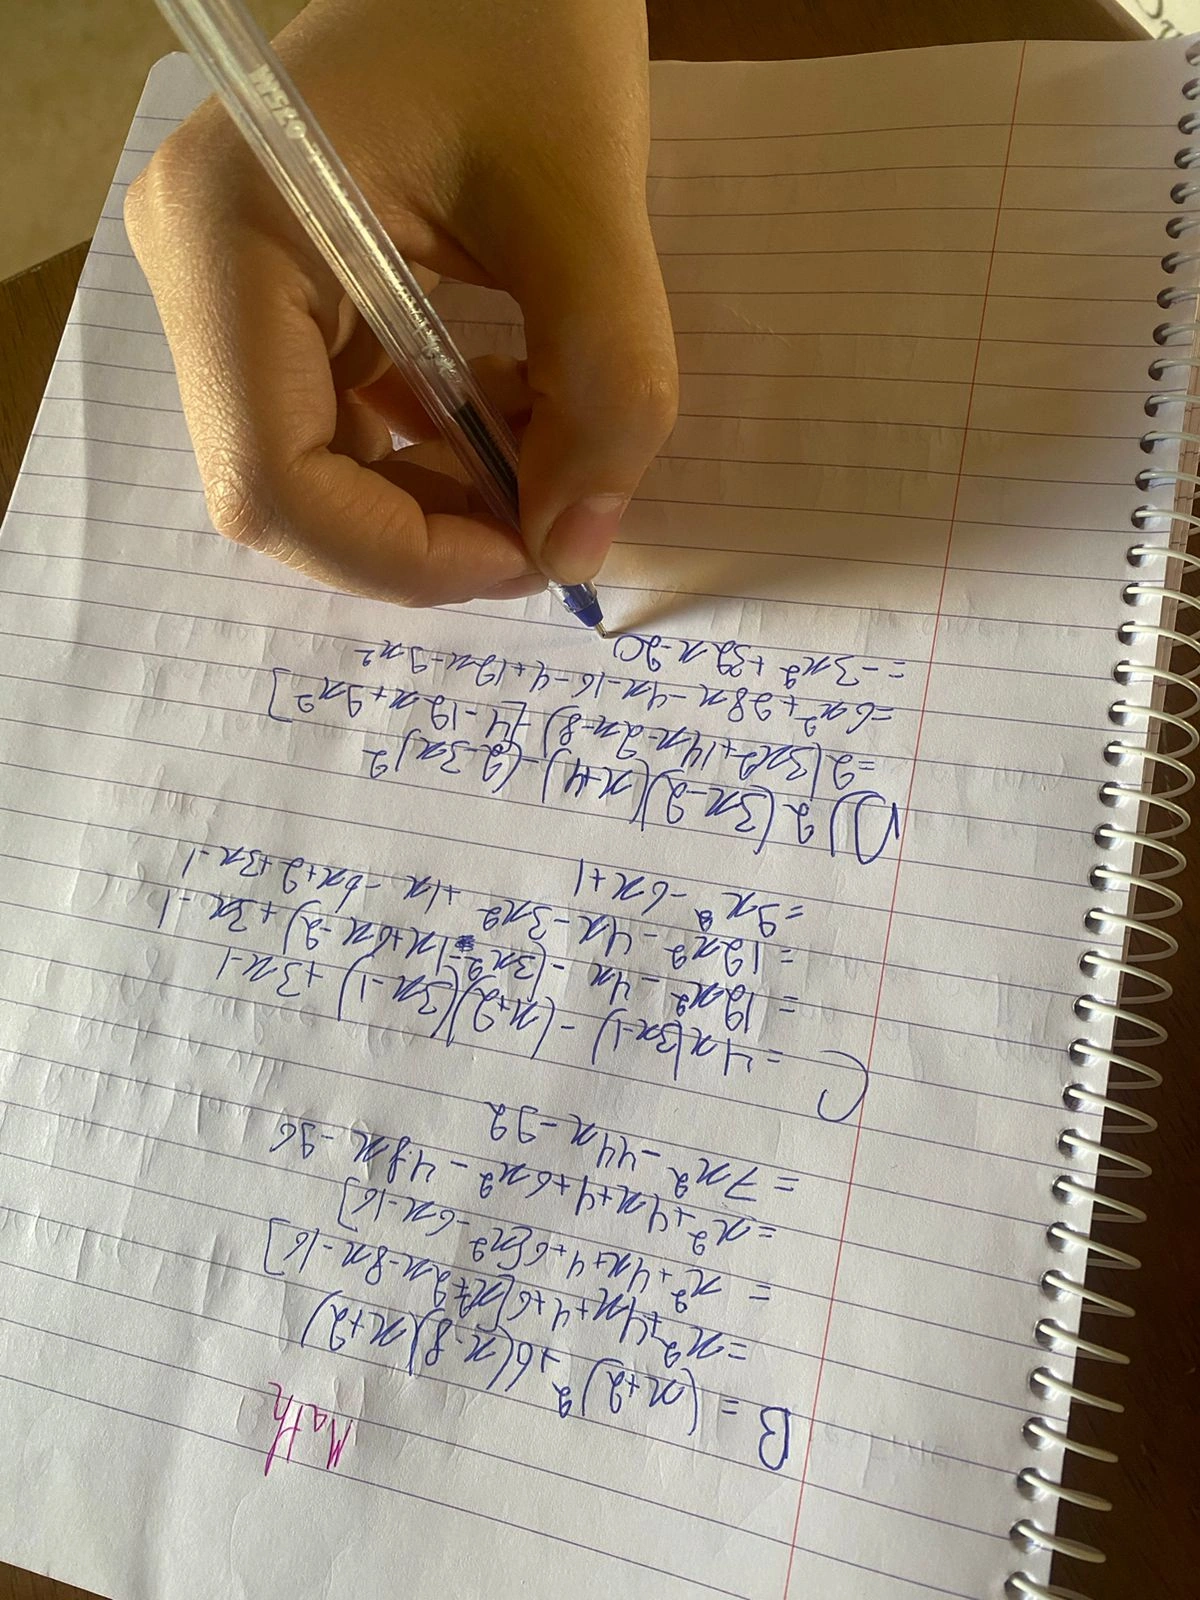 Math
B = (x+2)² + 6(x-8)(x+2)
= x² + 4x + 4 + 6[x²+2x-8x-16]
= x² + 4x + 4 + 6[x² - 6x - 16]
= x² + 4x + 4 + 6x² - 48x - 96
= 7x² - 44x - 92
C
= 4x(3x-1) - (x+2)(3x-1) + 3x-1
= 12x² - 4x - (3x² - 1x + 6x - 2) + 3x - 1
= 12x² - 4x - 3x² + 1x - 6x + 2 + 3x - 1
= 9x² - 6x + 1
D) 2(3x-2)(x+4) - (2-3x)2
= 2(3x²+14x-2x-8) - [4-12x+9x²]
= 6x² + 28x - 4x - 16 - 4 + 12x - 9x²
= -3x² + 32x - 20